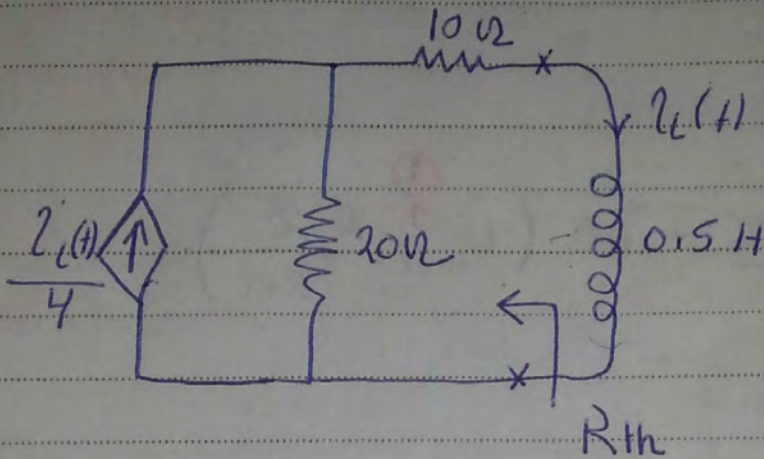 10 Ω
i_L(t)
i_L(t)
4
20Ω
0.5 H
Rth